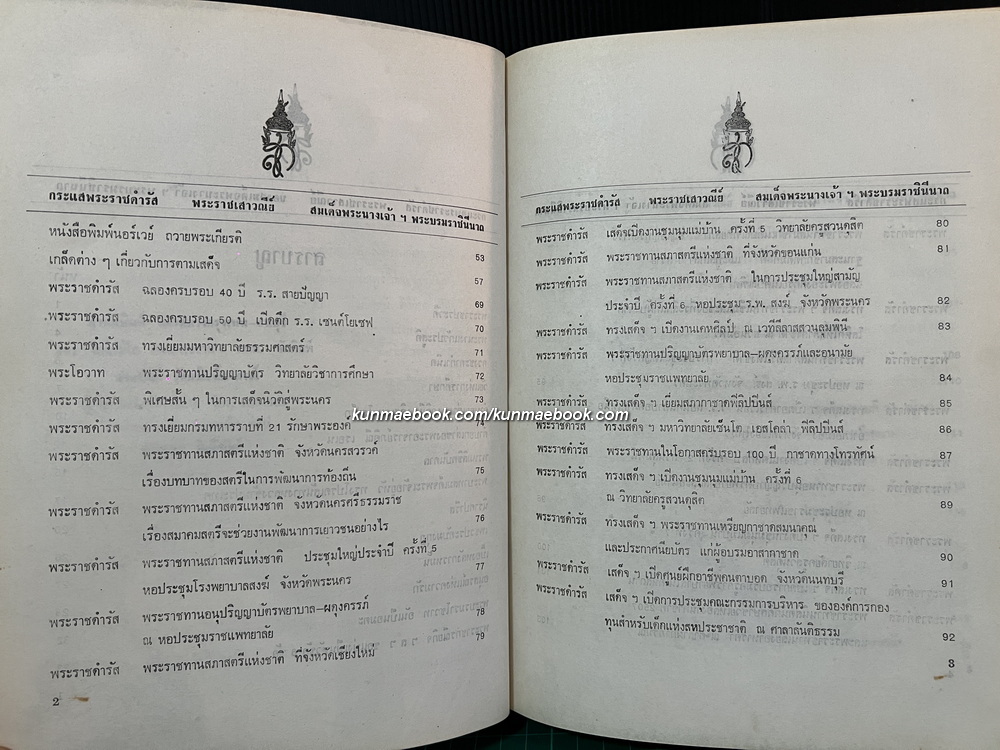 กระแสพระราชดำรัส พระราชเสาวณีย์ สมเด็จพระนางเจ้า ฯ พระบรมราชินีนาถ
หนังสือพิมพ์นอร์เวย์ ถวายพระเกียรติ 53
เกล็ดต่าง ๆ เกี่ยวกับการตามเสด็จ 57
พระราชดำรัส ฉลองครบรอบ 40 ปี ร.ร. สายปัญญา 69
พระราชดำรัส ฉลองครบรอบ 50 ปี เปิดตึก ร.ร. เซนต์โยเซฟ 70
พระราชดำรัส ทรงเยี่ยมมหาวิทยาลัยธรรมศาสตร์ 71
พระโอวาท พระราชทานปริญญาบัตร วิทยาลัยวิชาการศึกษา 72
พระราชดำรัส พิเศษสั้น ๆ ในการเสด็จนิวัติสู่พระนคร 73
พระราชดำรัส ทรงเยี่ยมกรมทหารราบที่ 21 รักษาพระองค์ 74
พระราชดำรัส พระราชทานสภาสตรีแห่งชาติ จังหวัดนครสวรรค์
เรื่องบทบาทของสตรีในการพัฒนาการท้องถิ่น 75
พระราชดำรัส พระราชทานสภาสตรีแห่งชาติ จังหวัดนครศรีธรรมราช
เรื่องสมาคมสตรีจะช่วยงานพัฒนาการเยาวชนอย่างไร 76
พระราชดำรัส พระราชทานสภาสตรีแห่งชาติ ประชุมใหญ่ประจำปี ครั้งที่ 5
หอประชุมโรงพยาบาลสงฆ์ จังหวัดพระนคร 77
พระราชดำรัส พระราชทานอนุปริญญาบัตรพยาบาล–ผดุงครรภ์
ณ หอประชุมราชแพทยาลัย 78
พระราชดำรัส พระราชทานสภาสตรีแห่งชาติ ที่จังหวัดเชียงใหม่ 79
2
กระแสพระราชดำรัส พระราชเสาวณีย์ สมเด็จพระนางเจ้า ฯ พระบรมราชินีนาถ
พระราชดำรัส เสด็จเปิดงานชุมนุมแม่บ้าน ครั้งที่ 5 วิทยาลัยครูสวนดุสิต 80
พระราชดำรัส พระราชทานสภาสตรีแห่งชาติ ที่จังหวัดขอนแก่น 81
พระราชดำรัส พระราชทานสภาสตรีแห่งชาติ ในการประชุมใหญ่สามัญ
ประจำปี ครั้งที่ 6 หอประชุม ร.พ. สงฆ์ จังหวัดพระนคร 82
พระราชดำรัส ทรงเสด็จ ฯ เปิดงานเคหศิลป์ ณ เวทีลีลาสสวนลุมพินี 83
พระราชดำรัส พระราชทานปริญญาบัตรพยาบาล–ผดุงครรภ์และอนามัย
หอประชุมราชแพทยาลัย 84
พระราชดำรัส ทรงเสด็จ ฯ เยี่ยมสภากาชาดฟิลิปปินส์ 85
พระราชดำรัส ทรงเสด็จ ฯ มหาวิทยาลัยเซ็นโต เอสโคล่า ฟิลิปปินส์ 86
พระราชดำรัส พระราชทานในโอกาสครบรอบ 100 ปี กาชาดทางโทรทัศน์ 87
พระราชดำรัส ทรงเสด็จ ฯ เปิดงานชุมนุมแม่บ้าน ครั้งที่ 6
ณ วิทยาลัยครูสวนดุสิต 89
พระราชดำรัส ทรงเสด็จ ฯ พระราชทานเหรียญกาชาดสมนาคุณ
และประกาศนียบัตร แก่ผู้อบรมอาสากาชาด 90
พระราชดำรัส เสด็จ ฯ เปิดศูนย์ฝึกอาชีพคนตาบอด จังหวัดนนทบุรี 91
พระราชดำรัส เสด็จ ฯ เปิดการประชุมคณะกรรมการบริหาร ขององค์การกอง
ทุนสำหรับเด็กแห่งสหประชาชาติ ณ ศาลาสันติธรรม 92
3
kunmaebook.com/kunmaebook.com